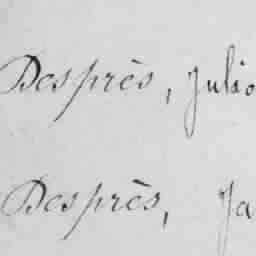 Desprès, Julio
Desprès, Ja